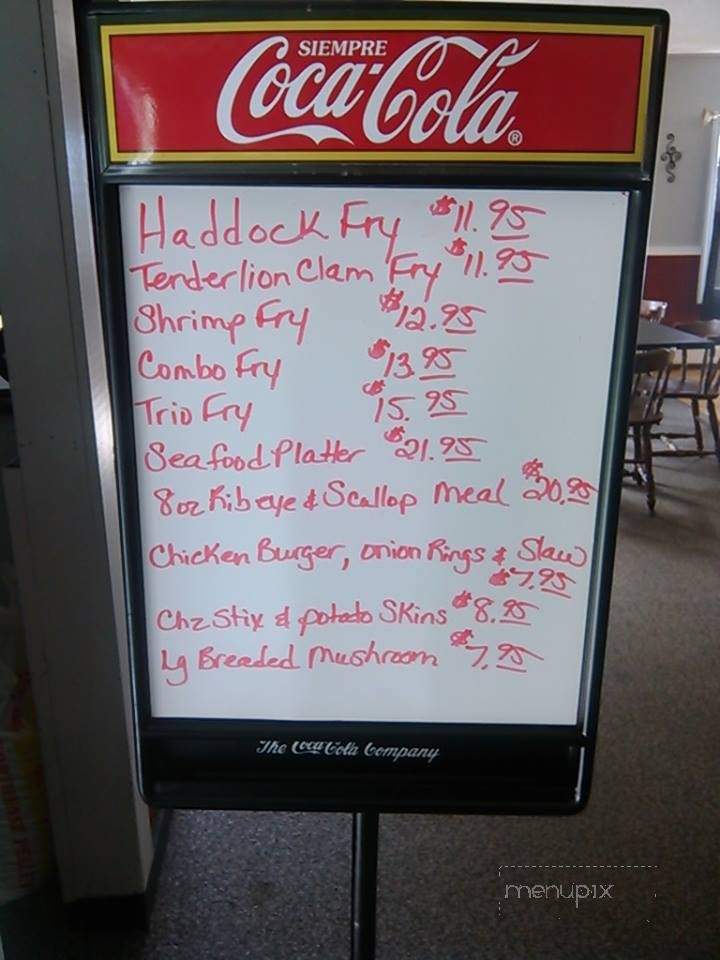 SIEMPRE
Coca-Cola®
Haddock Fry $11.95
Tenderlion Clam Fry $11.95
Shrimp Fry $12.95
Combo Fry $13.95
Trio Fry $15.95
Seafood Platter $21.95
8oz Ribeye & Scallop Meal $20.95
Chicken Burger, Onion Rings & Slaw
$7.95
Chz Stix & potato Skins $8.95
Lg Breaded Mushroom $7.95
The Coca-Cola Company
menupix